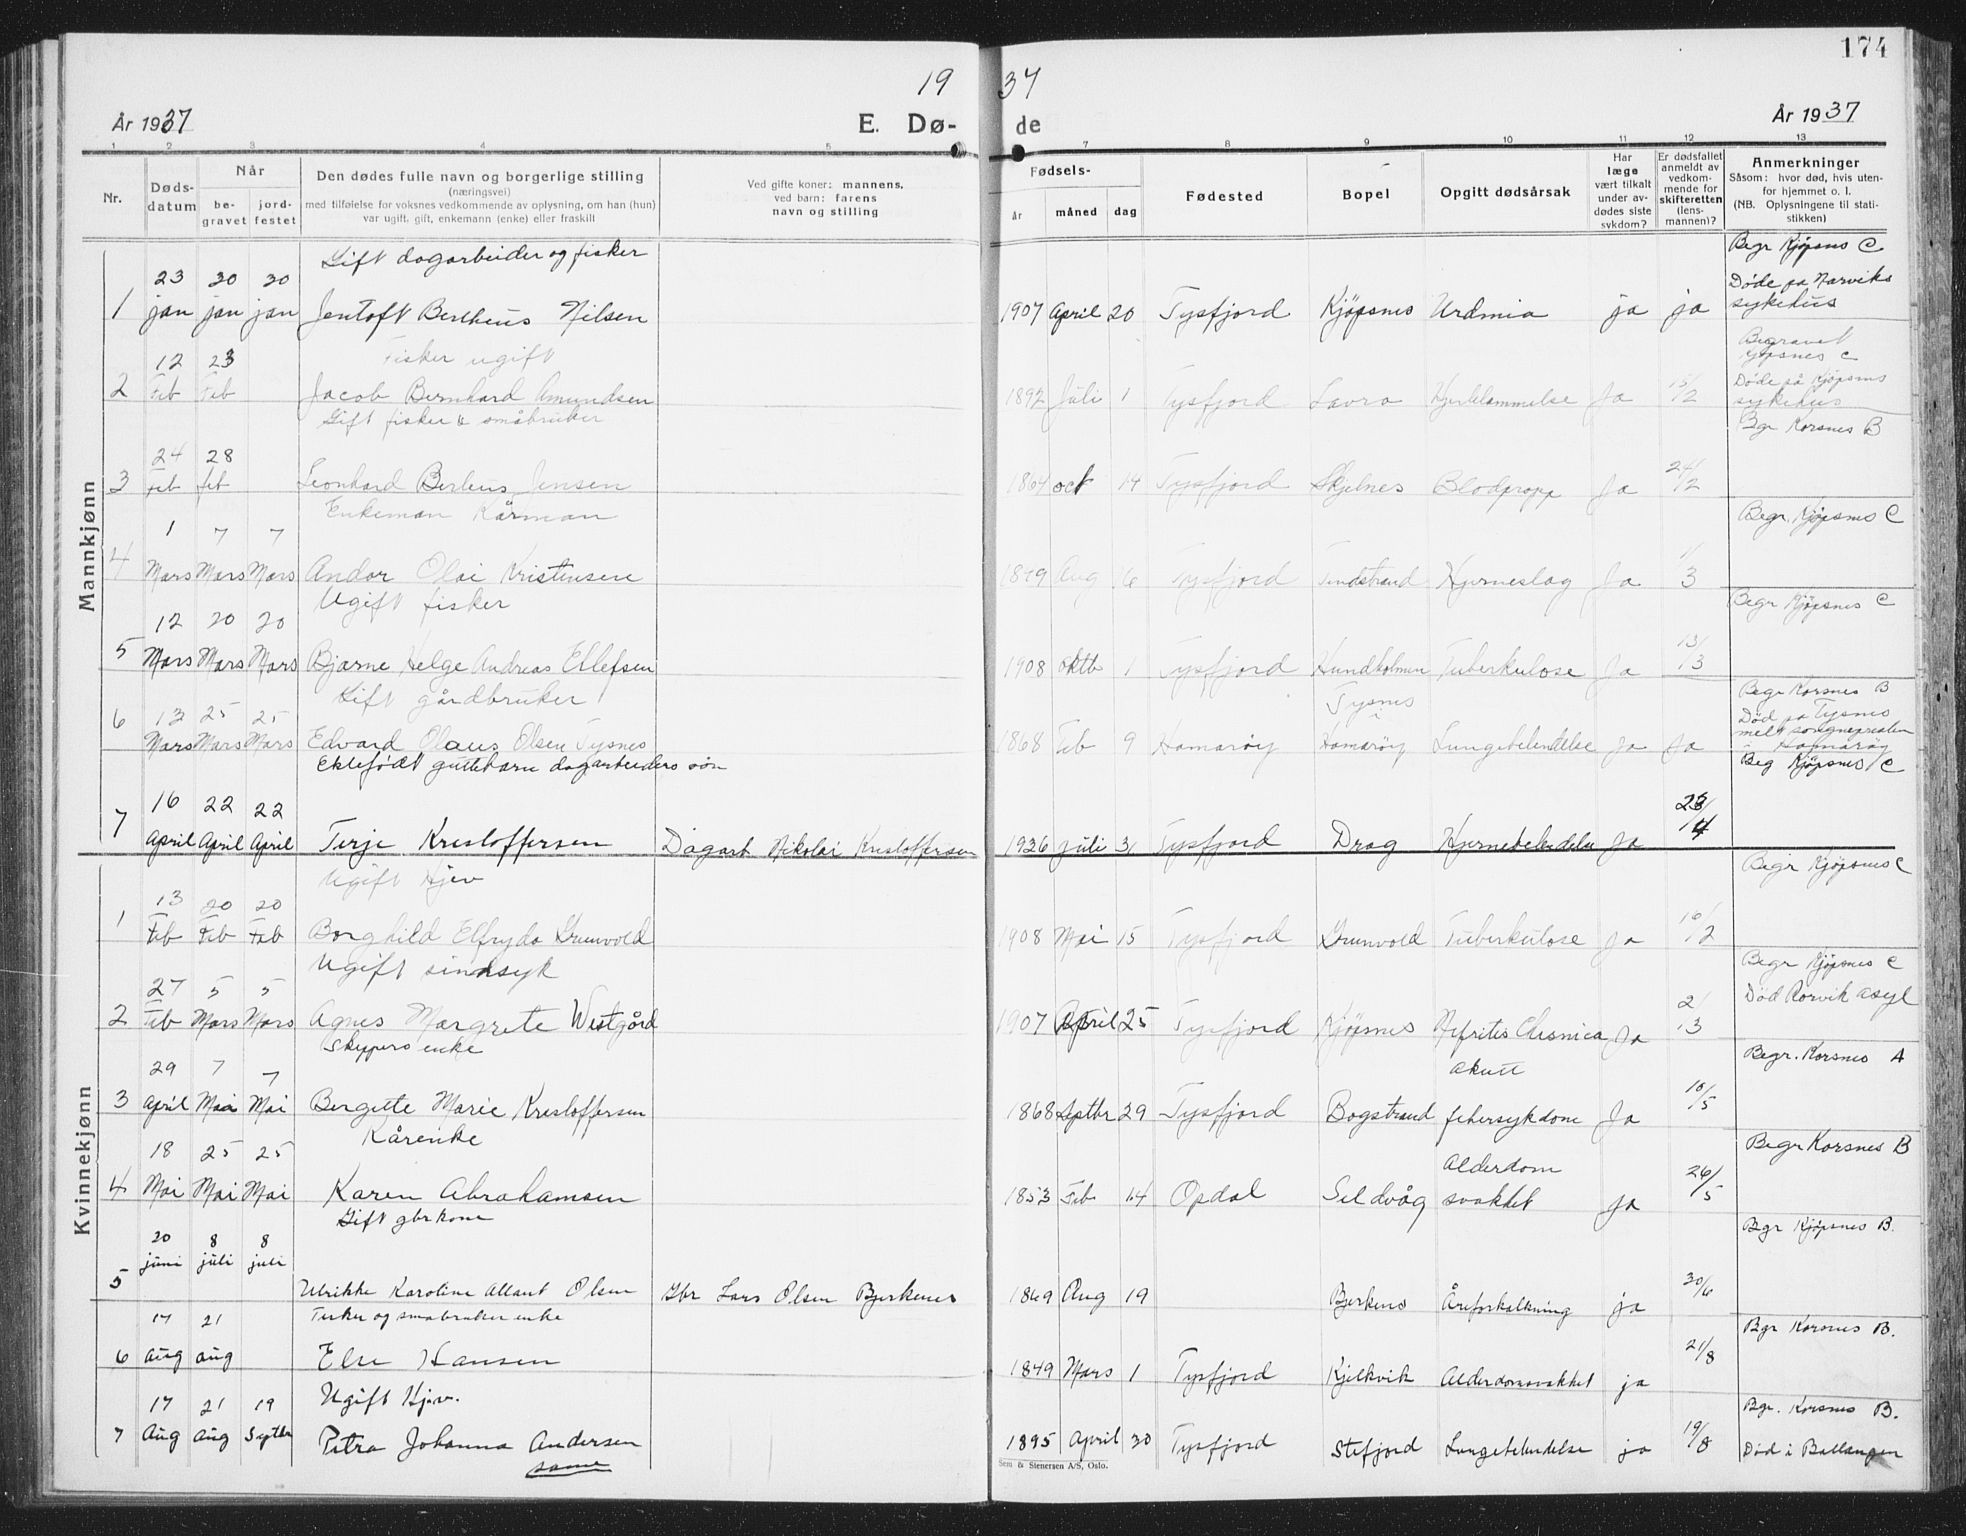 174
19 37
År 1937
E. Dø- de
År 1937
1 2 3 4 5 7 8 9 10 11 12 13
Nr.
Døds-
datum
Når
be-
gravet
jord-
festet
Den dødes fulle navn og borgerlige stilling
(næringsvei)
med tilføielse for voksnes vedkommende av oplysning, om han (hun)
var ugift, gift, enkemann (enke) eller fraskilt
Ved gifte koner: mannens,
ved barn: farens
navn og stilling
Fødsels-
år måned dag
Fødested
Bopel
Opgitt dødsårsak
Har
læge
vært tilkalt
under av-
dødes siste
sykdom?
Er dødsfallet
anmeldt av
vedkom-
mende for
skifteretten
(lens-
mannen)?
Anmerkninger
Såsom: hvor død, hvis uten-
for hjemmet o. l.
(NB. Oplysningene til stati-
stikken)
Mannkjønn
Gift dagarbeider og fisker Begr Kjöpsnes C
23 20 20 Døde på Narviks
1 jan jan jan Jentoft Bertheus Nilsen 1907 April 20 Tysfjord Kjöpsnes Urdmia ja ja sykehus
12 23 Fisker ugift Begravet Kjöpsnes C
2 Feb Feb Jacob Bernhard Amundsen 1892 Juli 1 Tysfjord Lavra Hjertelammelse Ja 15/2 Døde på Kjöpsnes sykehus
Gift fisker & småbruker Bgr Korsnes B
24 28
3 Feb feb Leonhard Berteus Jensen 1864 oct 14 Tysfjord Skjelnes Blodpropp Ja 24/2
Enkeman Kårman Begr. Kjöpsnes C
1 7 7
4 Mars Mars Mars Andor Olai Kristensen 1849 Aug 16 Tysfjord Tindstrand Hjerneslag Ja 1/3
Ugift fisker Begr Kjöpsnes C
12 20 20
5 Mars Mars Mars Bjarne Helge Andreas Ellefsen 1908 oktb 1 Tysfjord Hundholmen Tuberkulose Ja 13/3
Gift gårdbruker Tysnes Begr Korsnes B
13 25 25 i Død på Tysnes
6 Mars Mars Mars Edvard Olaus Olsen Tysnes 1868 Feb 9 Hamarøy Hamarøy Lungebetendelse ja Ja melt sognepresten i Hamarøy
Ektefødt guttebarn dagarbeiders søn Beg Kjöpsnes C
16 22 22
7 April April April Terje Kristoffersen Dagarb Nikolai Kristoffersen 1936 juli 31 Tysfjord Drag Hjernebetendelse Ja 23/4
Kvinnekjønn
Ugift Hjev Begr Kjöpsnes C
13 20 20
1 Feb Feb Feb Borghild Elfryda Grunvold 1908 Mai 15 Tysfjord Grunvold Tuberkulose Ja 16/2
Ugift sindsyk Begr Kjöpsnes C
27 5 5 Død Rorvik asyl
2 Feb Mars Mars Agnes Margrete Westgård 1907 April 25 Tysfjord Kjöpsnes Nefritis Chronica Ja 2/3
Skyppers enke akutt Begr. Korsnes A
29 7 7
3 April Mai Mai Bergitte Marie Kristoffersen 1868 Septbr 29 Tysfjord Bogstrand febersykdom Ja 10/5
Kårenke Begr Korsnes B
18 25 25 Alderdom
4 Mai Mai Mai Karen Abrahamsen 1853 Feb 14 Opdal Seldvåg svakhet Ja 26/5
Gift gbr kone Bgr Kjöpsnes B.
20 8 8
juni juli juli
5 Ulrikke Karoline Albant Olsen Gbr Lars Olsen Bjerkenes 1869 Aug 19 Bjerknes Åreforkalkning ja 30/6
Fisker og småbruker enke Bgr Korsnes B.
17 21
6 Aug aug Else Hansen 1849 Mars 1 Tysfjord Kjelkvik Alderdomsvakhet ja 21/8
Ugift Hjev. Bgr. Korsnes B.
17 21 19
7 Aug aug Septbr Petra Johanna Andersen 1895 April 30 Tysfjord Stefjord Lungebetendelse ja 19/8 Død i Ballangen
same
Sem & Stenersen A/S, Oslo.